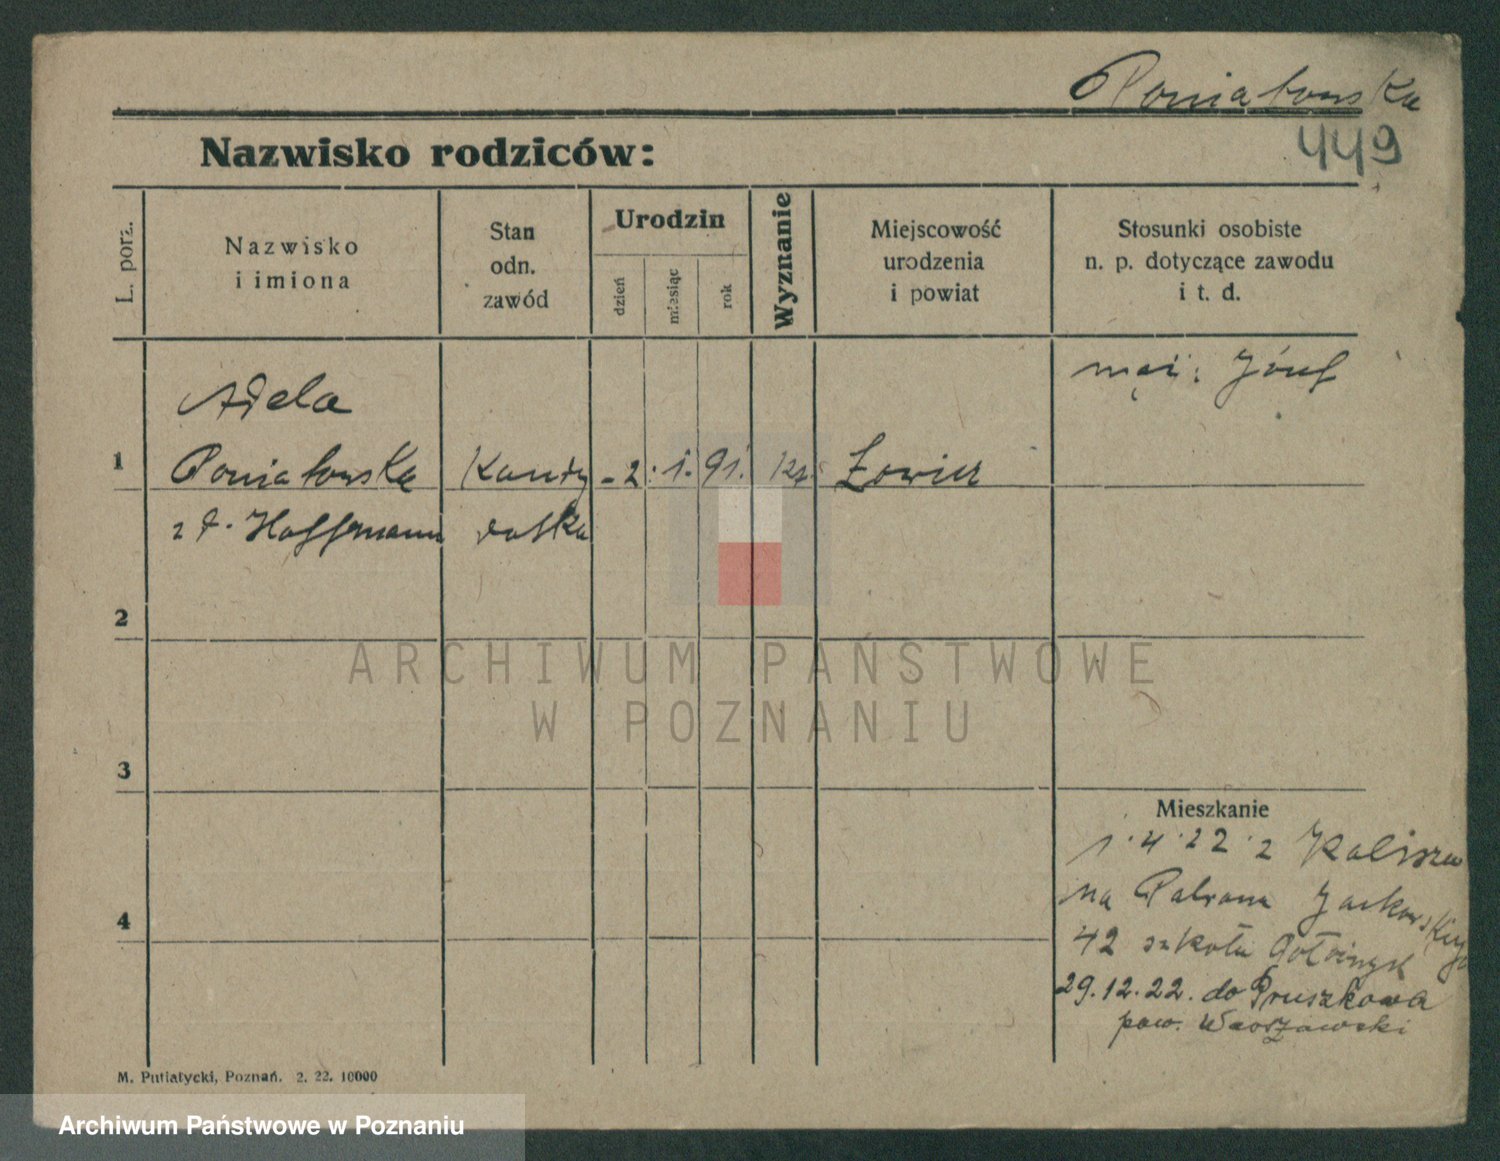 Poniatowska
449
Nazwisko rodziców:
L. porz.
Nazwisko
i imiona
Stan
odn.
zawód
Urodzin
dzień
miesiąc
rok
Wyznanie
Miejscowość
urodzenia
i powiat
Stosunki osobiste
n. p. dotyczące zawodu
i t. d.
mąż: Józef
Adela
1 Poniatowska Kandy -2. 1. 91. kt. Łowicz
z d. Hoffmann datka
2
3
4
Mieszkanie
1.4.22 z Kalisza
na Patrona Jackowskiego
42 szkoła Położnych
29.12.22. do Pruszkowa
pow. Warszawski
M. Putiatycki, Poznań. 2. 22. 10000
ARCHIWUM PAŃSTWOWE
W POZNANIU
Archiwum Państwowe w Poznaniu